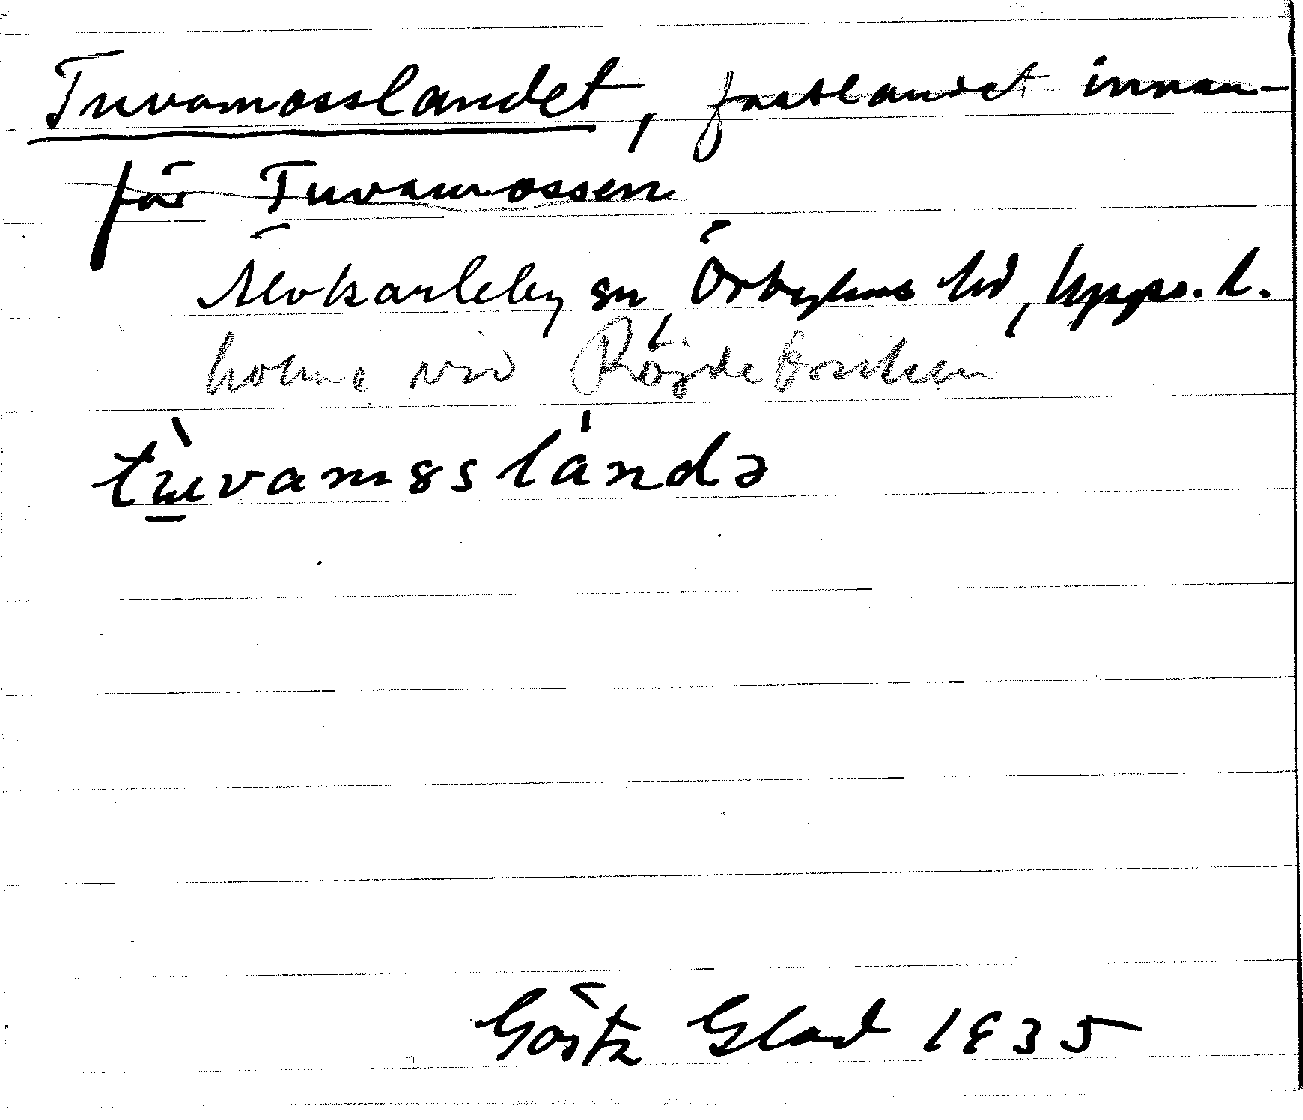 Tuvamosslandet, fastlandet innan-
för Tuvamossen
Älvkarleby sn, Örbyhus hd, Upps. l.
holme vid
tu̲vamɷslandə
Gösta Glad 1935